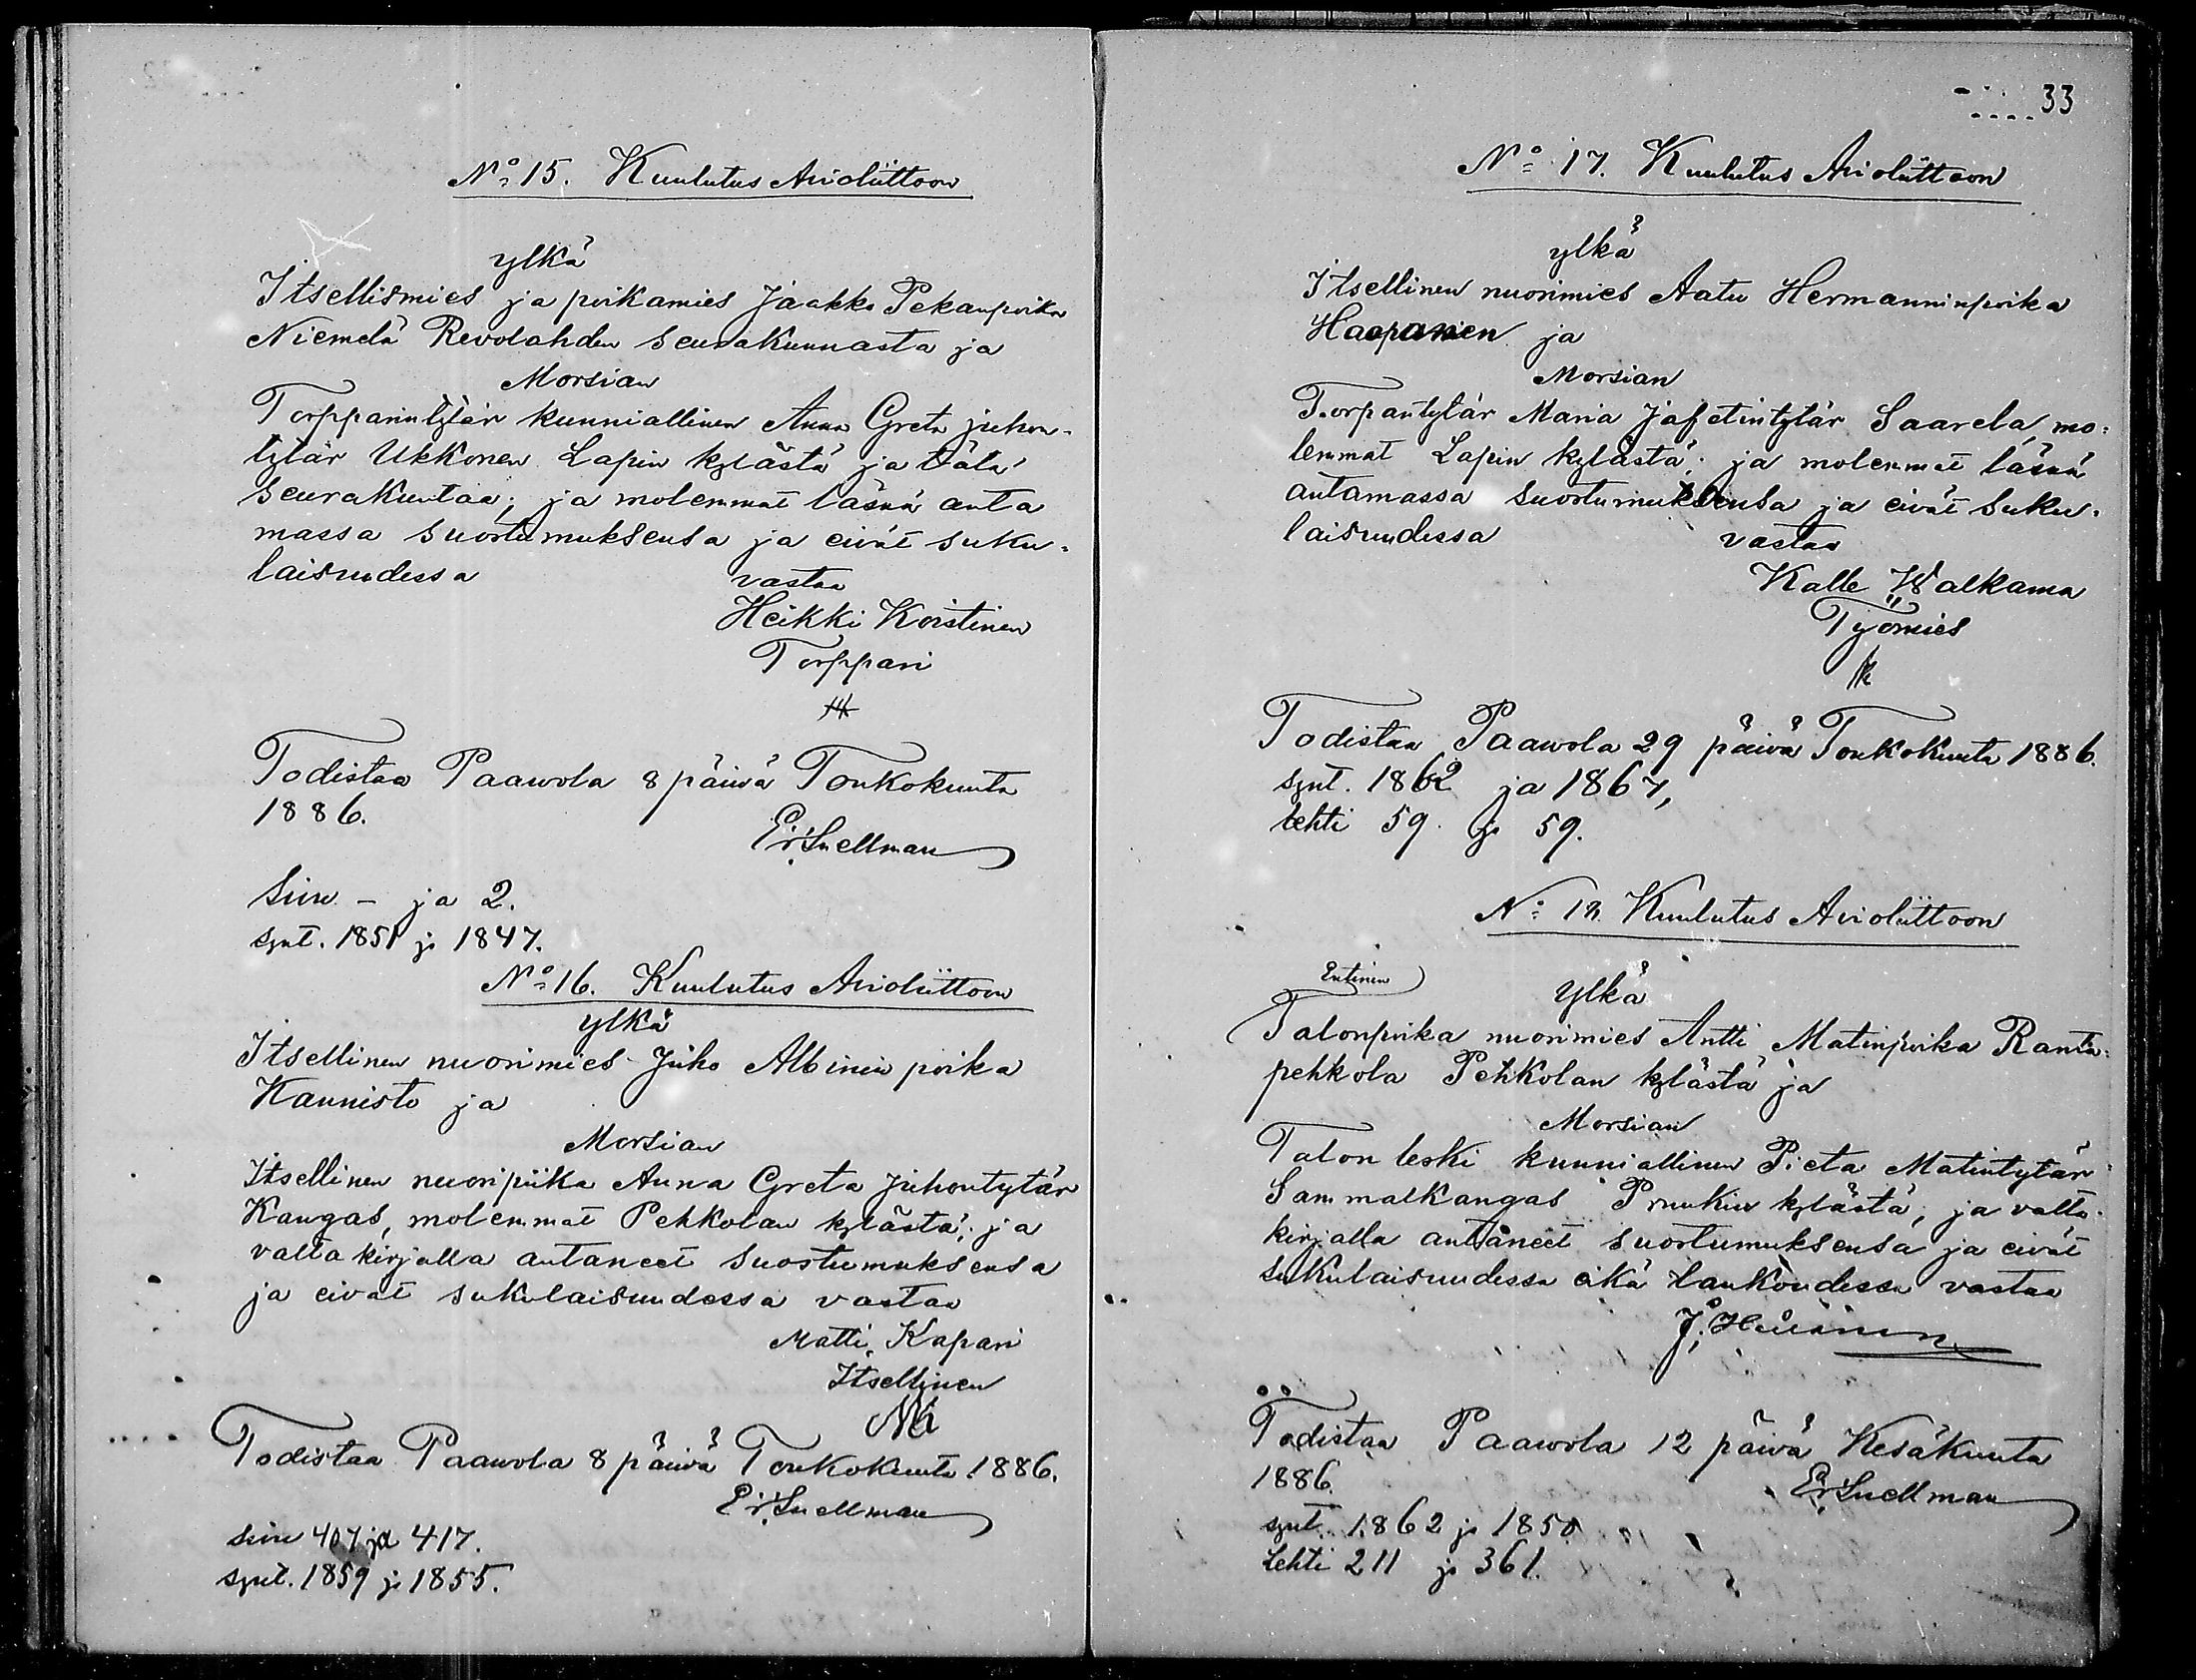 No 15. Kuulutus Avioliittoon
ylkä
Itsellismies ja poikamies Jaakko Pekanpoika
Niemelä Revolahden seurakunnasta ja
Morsian
Torpparintytär kunniallinen Anna Greta juhon-
tytär Ukkonen Lapin kylästä ja tätä
seurakuntaa; ja molemmat läsnä anta
massa suostumuksensa ja eivät suku-
laisuudessa vastaa
Heikki Koistinen
Torppari
Todistaa Paawola 8 päivä Toukokuuta
1886.
Er. Snellman
Sivu - ja 2.
synt. 1851 ja 1847.
No 16. Kuulutus Avioliittoon
ylkä
Itsellinen nuorimies Juho Albinin poika
Kannisto ja
Morsian
Itsellinen nuoripiika Anna Greta Juhontytär
Kangas, molemmat Pehkolan kylästä; ja
valta kirjalla antaneet suostumuksensa
ja eivät sukulaisuudessa vastaa
Matti Kapari
Itsellinen
MK
Todistaa Paawola 8 päivä Toukokuuta 1886.
Er. Snellman
sivu 407 ja 417.
synt. 1859 ja 1855.
33
No 17. Kuulutus Avioliittoon
ylkä
Itsellinen nuorimies Aatu Hermanninpoika
Haapanen ja
Morsian
Torpantytär Maria Jafetintytär Saarela, mo-
lemmat Lapin kylästä; ja molemmat läsnä
antamassa suostumuksensa ja eivät suku-
laisuudessa vastaa
Kalle Walkama
Työmies
Todistaa Paawola 29 päivä Toukokuuta 1886.
synt. 1862 ja 1867,
lehti 59 ja 59.
No 18. Kuulutus Avioliittoon
Entinen ylkä
Talonpoika nuorimies Antti Matinpoika Ranta-
pehkola Pehkolan kylästä ja
Morsian
Talon leski kunniallinen Pieta Matintytär
Sammalkangas Pruukin kylästä, ja valta-
kirjalla antaneet suostumuksensa ja eivät
sukulaisuudessa eikä lankoudessa vastaa
Todistaa Paawola 12 päivä Kesäkuuta
1886.
Er. Snellman
synt. 1862 ja 1850
Lehti 211 ja 361.